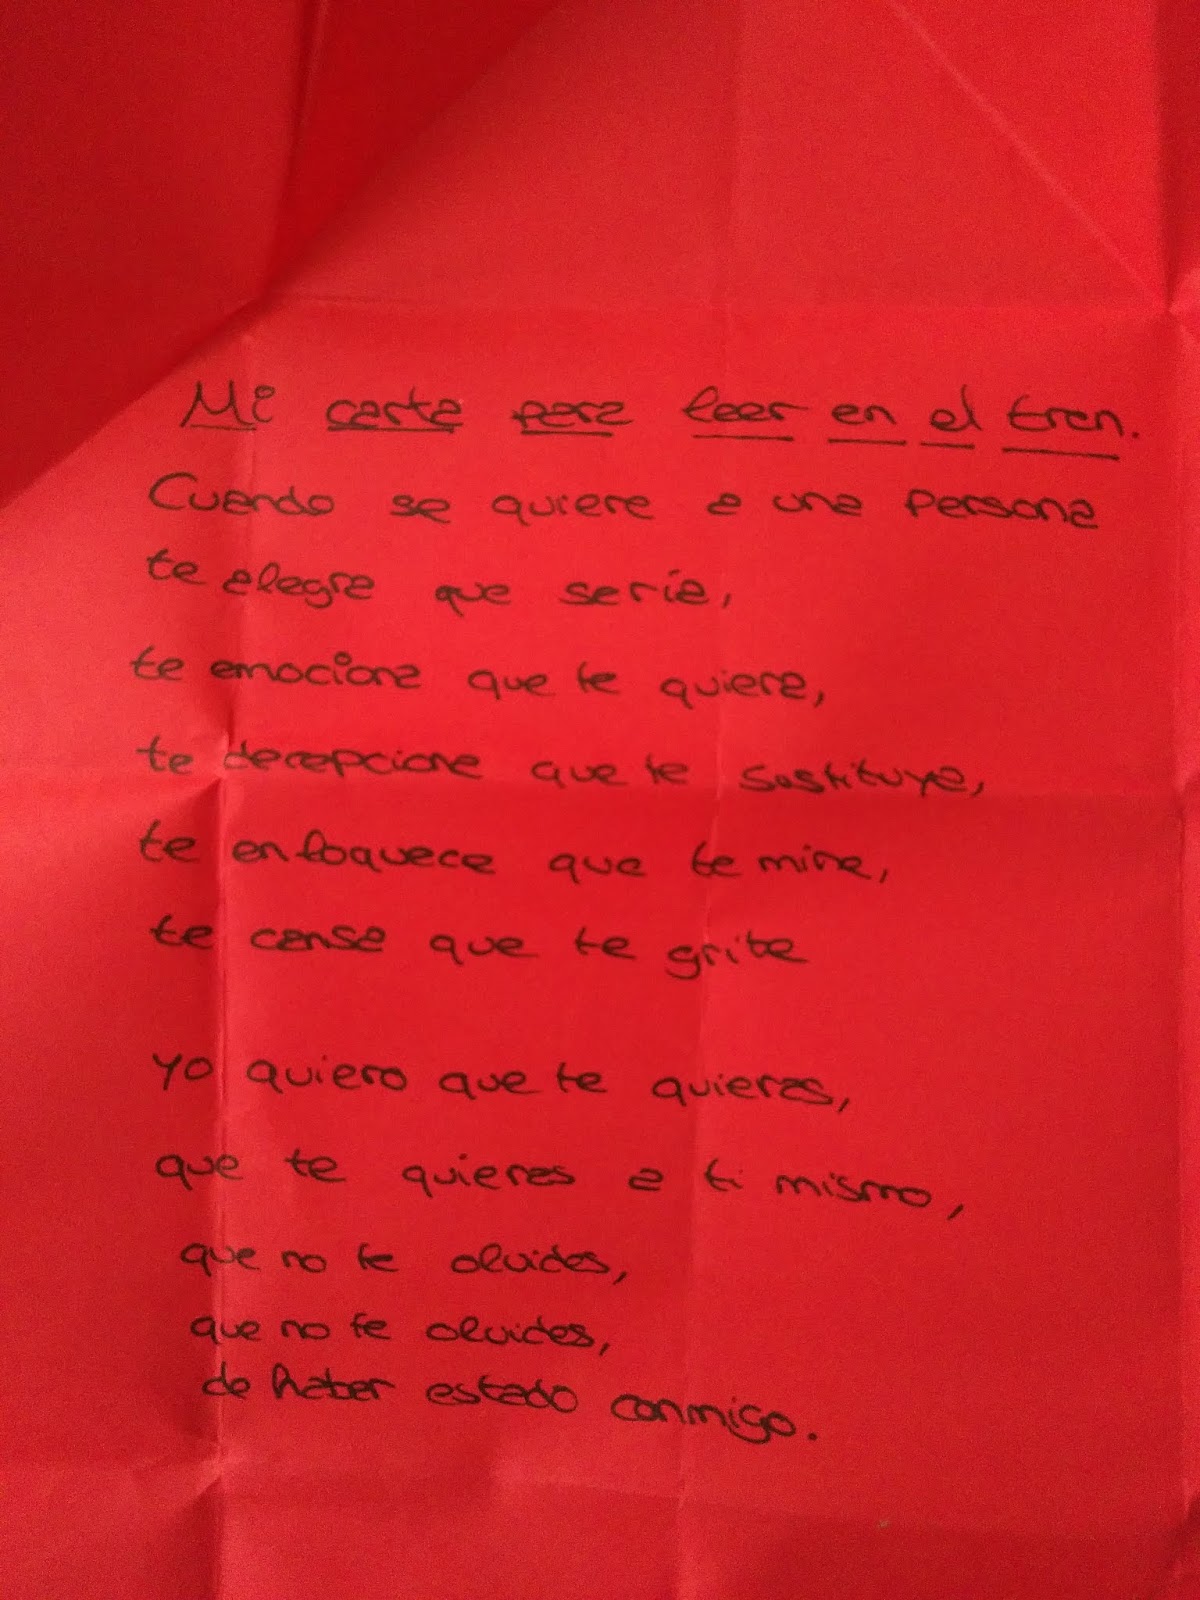 Mi carta para leer en el tren.
Cuando se quiere a una persona
te alegra que sería,
te emociona que te quiera,
te decepciona que te sustituya,
te enloquece que te mire,
te cansa que te grite
Yo quiero que te quieras,
que te quieras a ti mismo,
que no te olvides,
que no te olvides,
de haber estado conmigo.